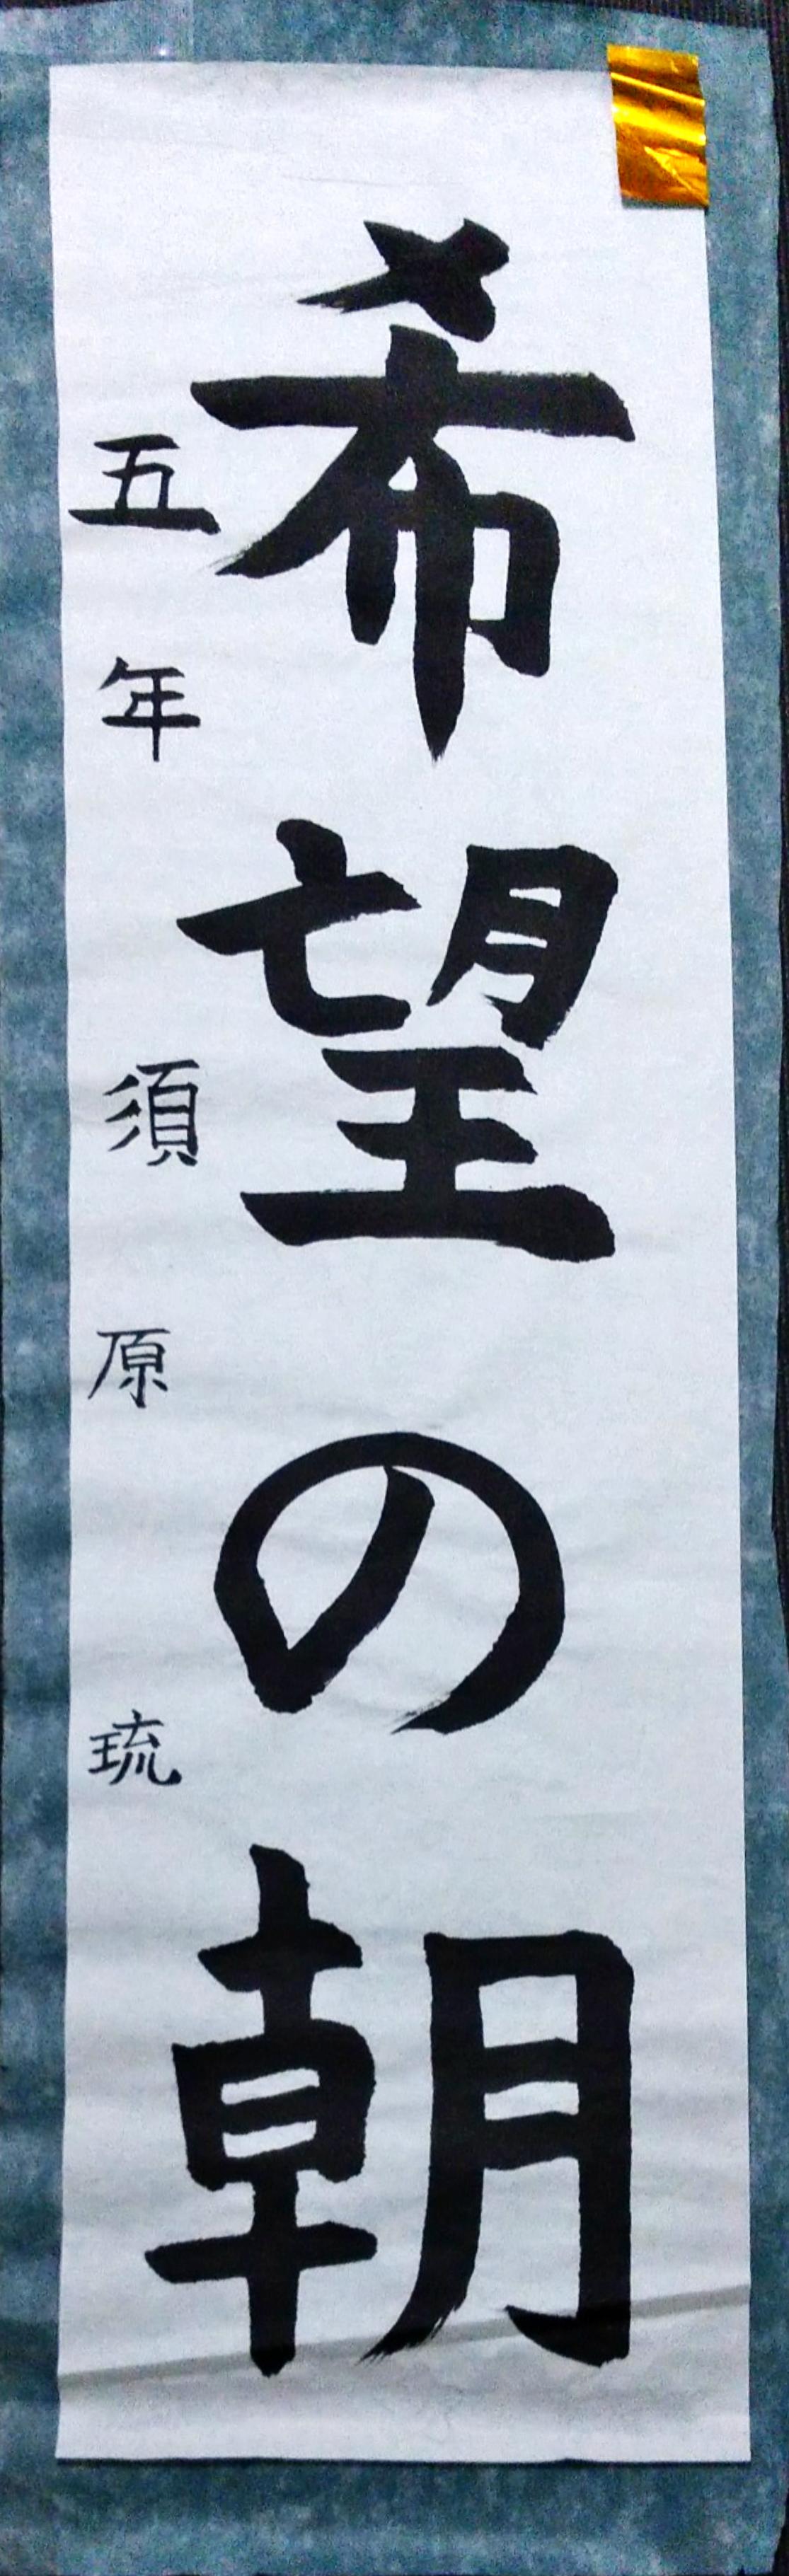 希望の朝
五年 須原 琉